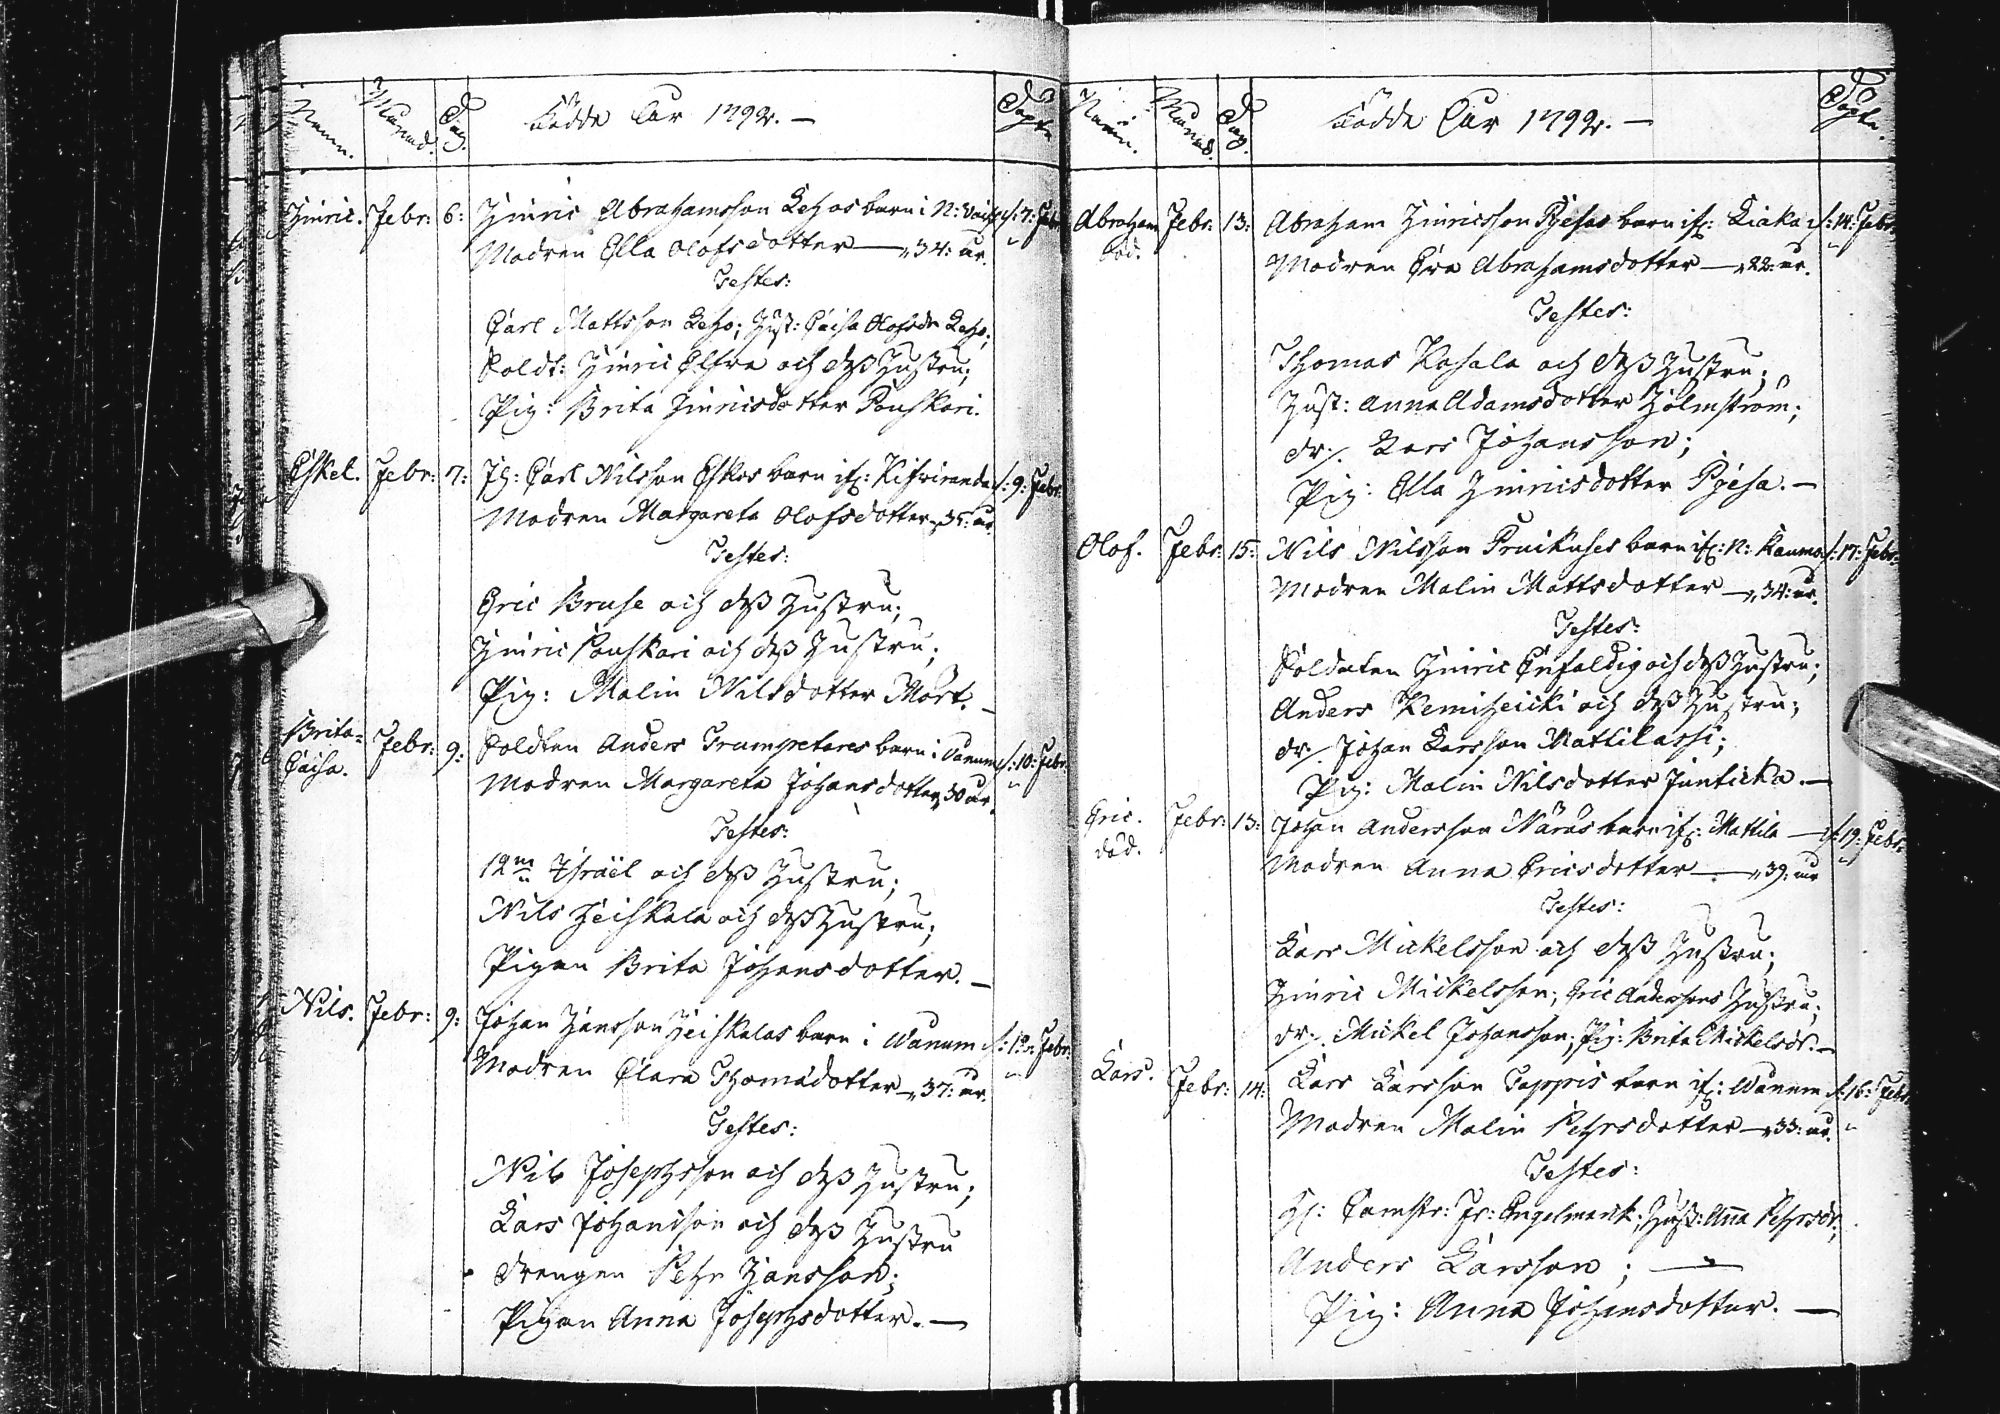 Namn. Månad. Dag. Födde Åhr 1792. — Döpte
Hinric. Febr: 6: Hinric Abrahamsson Lehos barn i N: d: 7: Febr
Modren Ella Olofsdotter — 34: år.
Testes:
Carl Mattsson Leho; Hust: Caisa Olofsdr Leho;
Soldt: Hinric Elfra och dess Hustru;
Pig: Brita Hinricsdotter Pouskari.
Eskel. Febr: 7: Carl Nilsson Eskos barn if: d: 9: Febr:
Modren Margareta Olofsdotter 35: år.
Testes:
Eric Bruse och dess Hustru;
Hinric Pouskari och dess Hustru;
Pig: Malin Nilsdotter Mört. —
Brita= Febr: 9: Soldten Anders Trumpetares barn i Vanum d: 10: Febr:
Caisa. Modren Margareta Johansdotter 30 år.
Testes:
12m Israël och dess Hustru;
Nils Heiskala och dess Hustru;
Pigan Brita Johansdotter. —
Nils. Febr: 9: Johan Hansson Heiskalas barn i Wanum d: Febr:
Modren Clara Thomadotter — 37: år.
Testes:
Nils Josephsson och dess Hustru;
Lars Johansson och dess Hustru
drengen Pehr Hansson;
Pigan Anna Josephsdotter. —
Namn. Månad. Dag. Födde Åhr 1792. — Döpte.
Abraham Febr: 13: Abraham Hinricsson Pyesas barn if: Kiaka d: 14: Febr:
död. Modren Eva Abrahamsdotter — 22: år.
Testes:
Thomas Kasala och dess Hustru;
Hust: Anna Adamsdotter Holmström;
dr: Lars Johansson;
Pig: Ella Hinricsdotter Pyesa. —
Olof. Febr: 15: Nils Nilsson Pruikuses barn if: N: Kaumo d: 17: Febr:
Modren Malin Mattsdotter — 34: år.
Testes:
Soldaten Hinric Enfaldig och dess Hustru;
Anders Kemiheicki och dess Hustru;
dr: Johan Larsson Mattilassi;
Pig: Malin Nilsdotter Junticka. —
Eric. Febr: 13: Johan Andersson Näräs barn if: Mattila — d: 19: Febr:
död. Modren Anna Ericsdotter — 39: år
Testes:
Lars Mickelsson och dess Hustru;
Hinric Mickelsson; Eric Anderssons Hustru;
dr: Mickel Johansson; Pig: Brita Mickelsdr. —
Lars. Febr: 14: Lars Larsson Toppis barn if: Wanum d: 16: Febr:
Modren Malin Pehrsdotter — 33: år.
Testes:
H: Camstr: Engelmarck; Hust: Anna Pehrsdr;
Anders Larsson; —
Pig: Anna Johansdotter. —